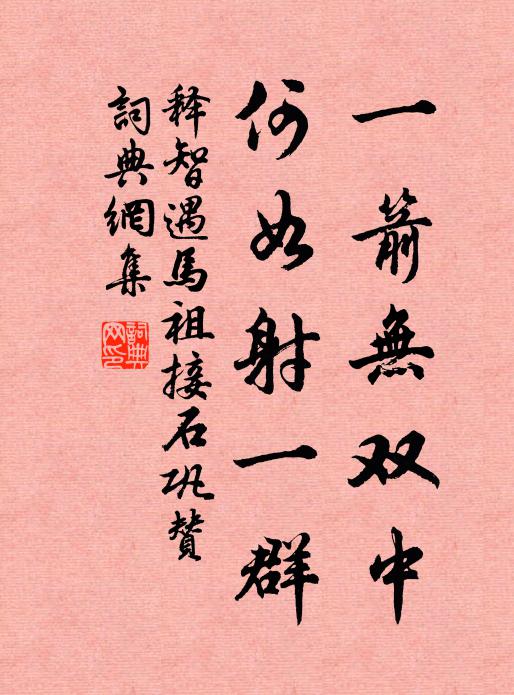 一箭無双中
何如射一群
释智遇馬祖接石巩贊
詞典網集
詞典
网印